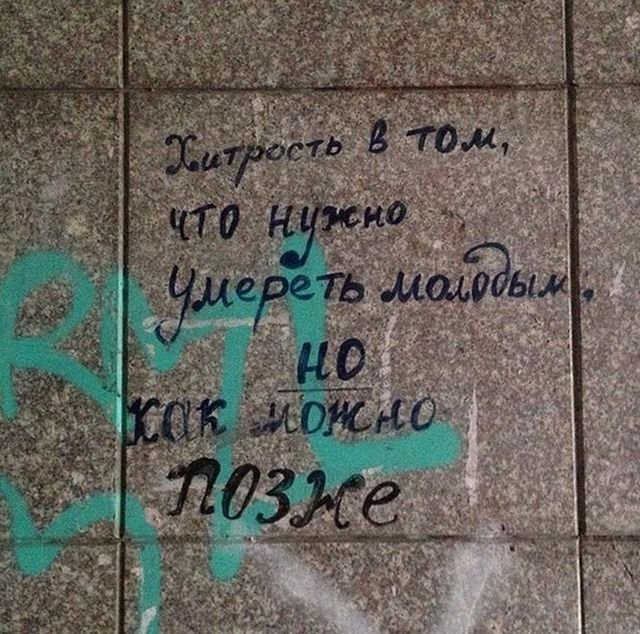 Хитрость в том,
что нужно
умереть молодым,
но
как можно
позже